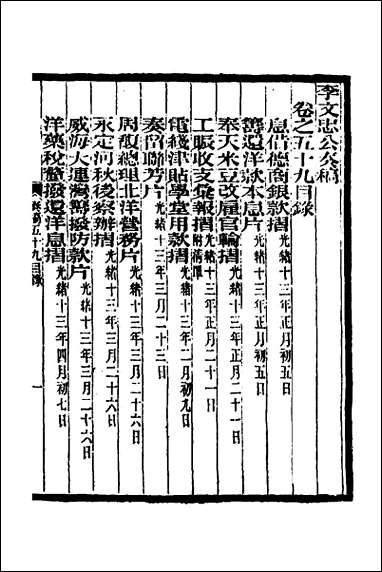 李文忠公奏稿
卷之五十九目錄
息借德商銀款摺光緒十三年正月初五日
籌還洋款本息片光緒十三年正月初五日
奉天米豆改雇官輪摺光緒十三年正月二十一日
工賑收支彙報摺附清單光緒十三年正月二十一日
電綫津貼學堂用款摺光緒十三年二月初九日
奏留聯芳片光緒十三年三月二十三日
周馥總理北洋營務片光緒十三年三月二十六日
永定河秋後察辦摺光緒十三年三月二十六日
威海大連灣籌撥防款片光緒十三年三月二十六日
洋藥稅釐撥還洋息摺光緒十三年四月初七日
奏稿五十九目錄
一